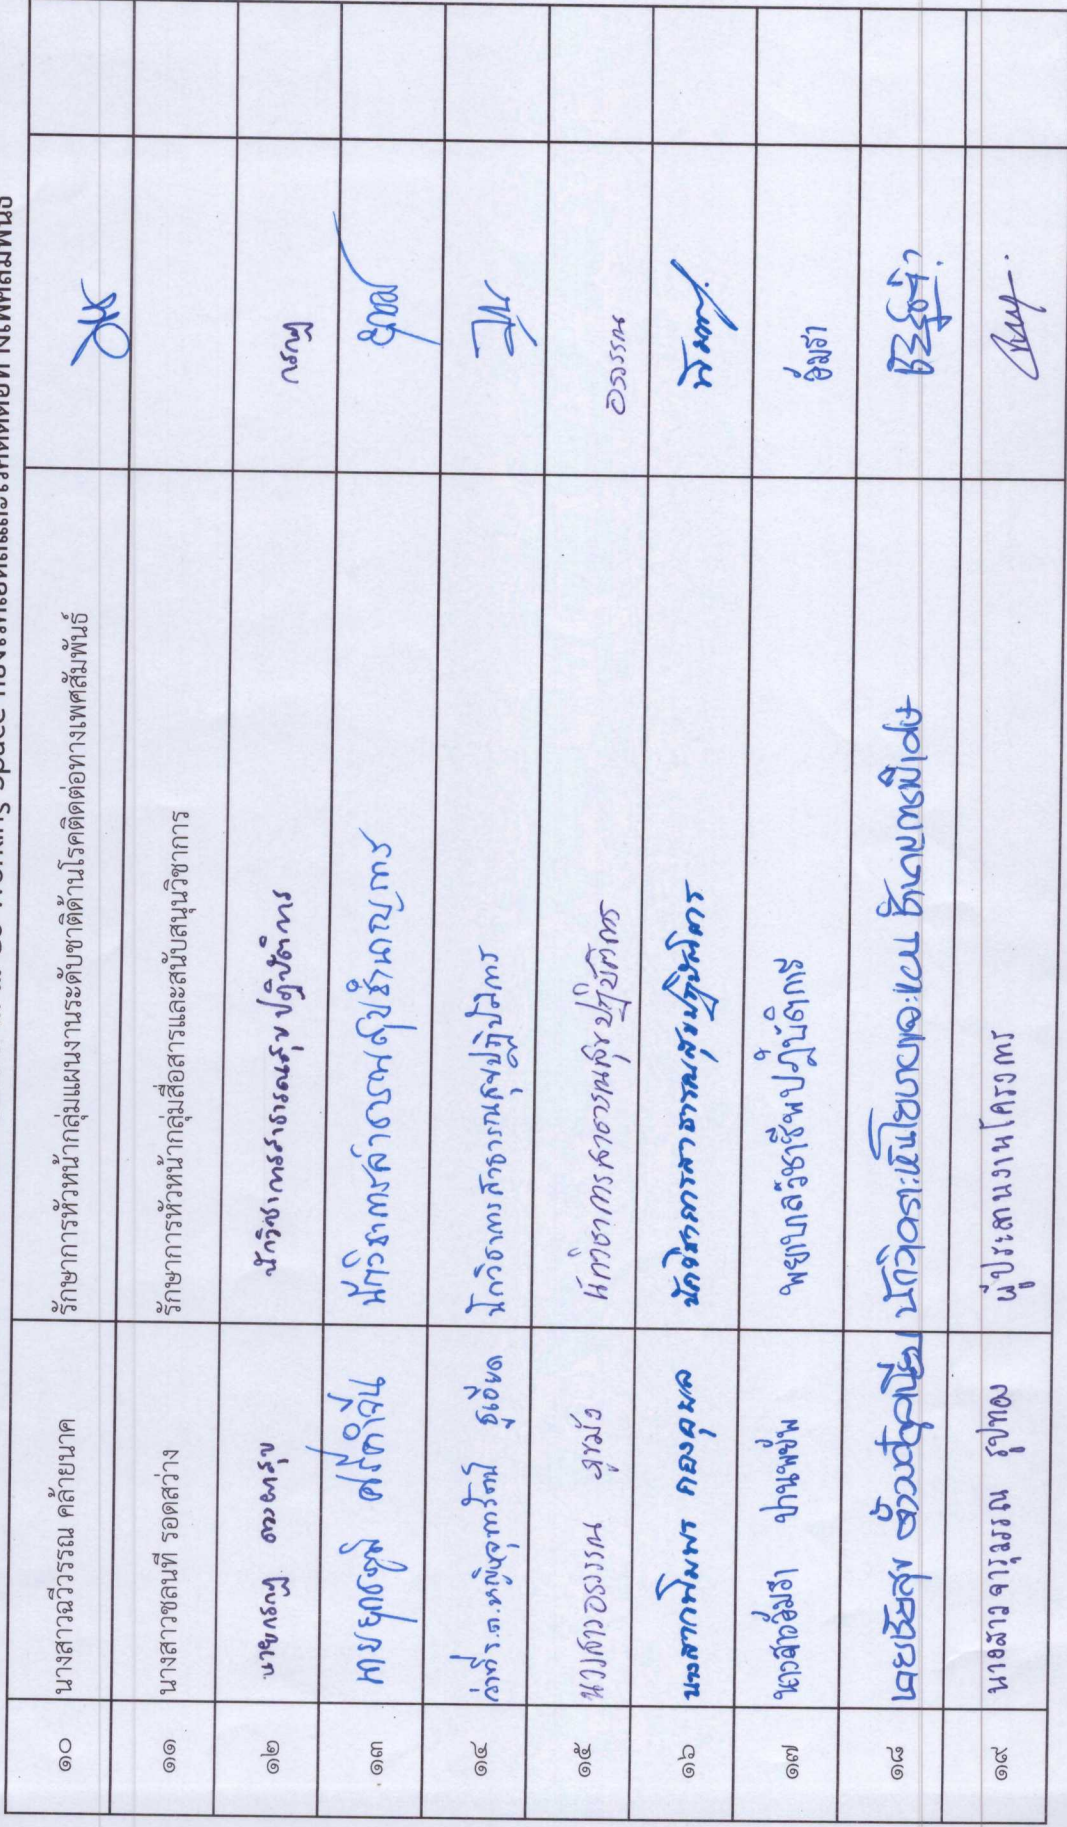 Co-Working Space กองโรคเอดส์และโรคติดต่อทางเพศสัมพันธ์
๑๐ นางสาวฉวีวรรณ คล้ายนาค รักษาการหัวหน้ากลุ่มแผนงานระดับชาติด้านโรคติดต่อทางเพศสัมพันธ์
๑๑ นางสาวชลนที รอดสว่าง รักษาการหัวหน้ากลุ่มสื่อสารและสนับสนุนวิชาการ
๑๒ นายกรกฎ ดวงผาสุข นักวิชาการสาธารณสุขปฏิบัติการ กรกฎ
๑๓ นักวิชาการสาธารณสุขชำนาญการ
๑๔ ว่าที่ ร.ต.หญิง ชูเอียด นักวิชาการสาธารณสุขปฏิบัติการ
๑๕ นางสาวอรวรรณ นักวิชาการสาธารณสุขปฏิบัติการ อรวรรณ
๑๖ นางสาวพิมพร นักวิชาการสาธารณสุขปฏิบัติการ
๑๗ นางสาวอัมรา ปานพยัพ พยาบาลวิชาชีพปฏิบัติการ อัมรา
๑๘ นักวิเคราะห์นโยบายและแผน ชำนาญการพิเศษ
๑๙ นางสาวจารุวรรณ รูปทอง ผู้ประสานงานโครงการ